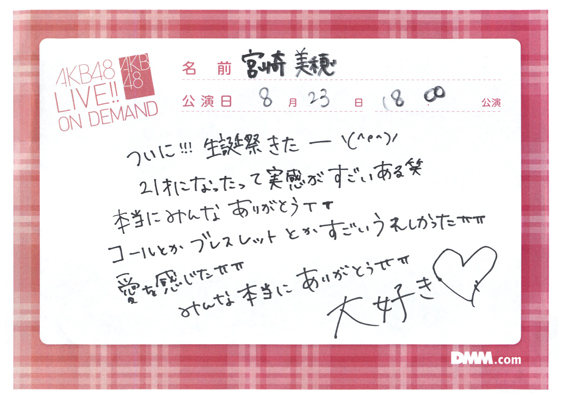 AKB48
LIVE!!
ON DEMAND
AKB
48
名 前 宮崎 美穂
公演日 8 月 23 日 18 00 公演
ついに!!! 生誕祭きたー ヽ(^o^)ノ
21才になったって実感がすごいある笑
本当にみんな ありがとうTT
コールとか ブレスレットとかすごいうれしかったTTTT
愛を感じたTTTT
みんな本当に ありがとうTTTT
大好き♡
DMM.com